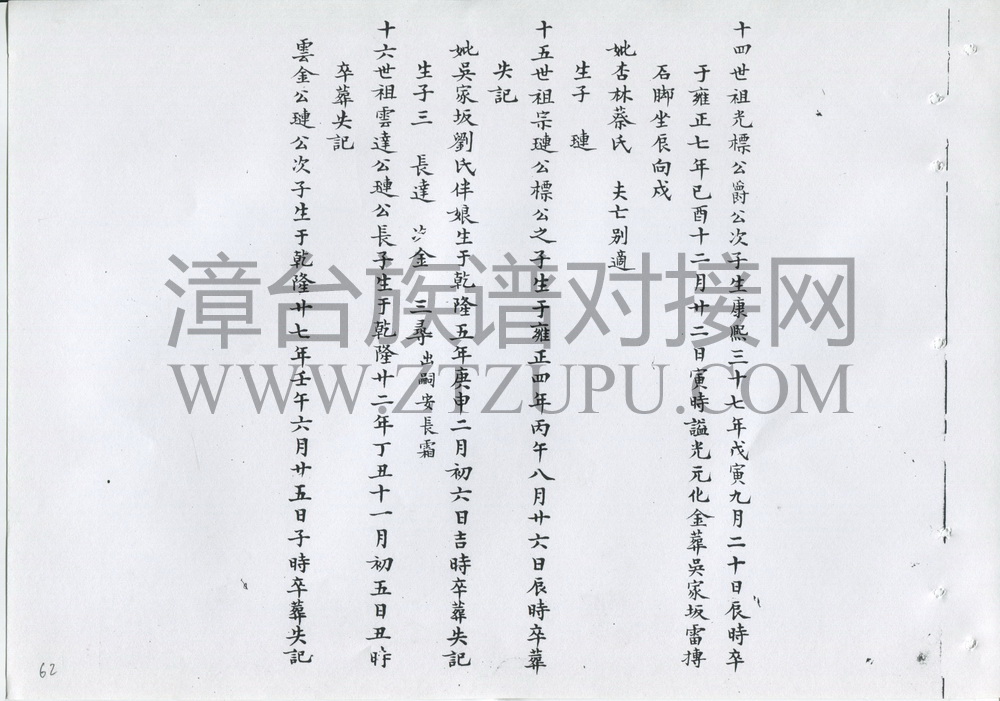 十四世祖光標公爵公次子生康熙三十七年戊寅九月二十日辰時卒
于雍正七年己酉十二月廿二日寅時謚光元化金葬吳家坂雷摶
石脚坐辰向戍
妣杏林蔡氏 夫亡别適
生子 璉
十五世祖宗璉公標公之子生于雍正四年丙午八月廿六日辰時卒葬
失記
妣吳家坂劉氏伴娘生于乾隆五年庚申二月初六日吉時卒葬失記
生子三 長達 次金 三尋出嗣安長霜
十六世祖雲達公璉公長子生于乾隆廿二年丁丑十一月初五日丑時
卒葬失記
雲金公璉公次子生于乾隆廿七年壬午六月廿五日子時卒葬失記
漳台族谱对接网
WWW.ZTZUPU.COM
62